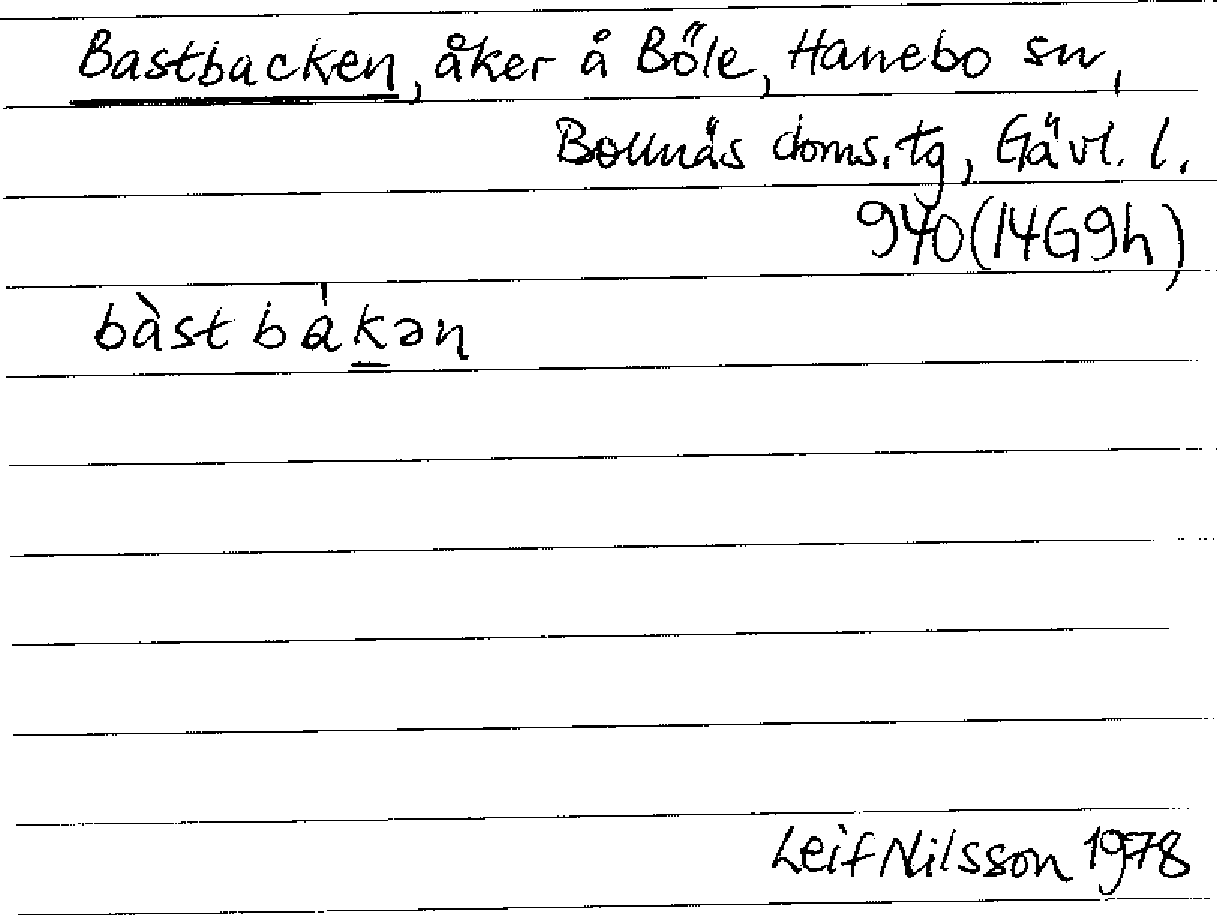 Bastbacken, åker å Böle, Hanebo sn,
Bollnäs doms.tg, Gävl. l.
940(14G9h)
bàstbàkəṇ
Leif Nilsson 1978